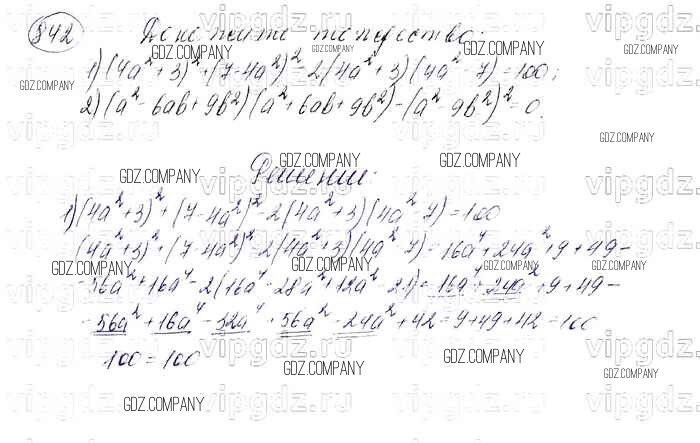 842 Докажите тождество:
1) (4a²+3)²+(7-4a²)²-2(4a²+3)(4a²-7)=100;
2) (a²-6ab+9b²)(a²+6ab+9b²)-(a²-9b²)²=0.
Решение:
1) (4a²+3)²+(7-4a²)²-2(4a²+3)(4a²-7)=100
(4a²+3)²+(7-4a²)²-2(4a²+3)(4a²-7)=16a⁴+24a²+9+49-
-56a²+16a⁴-2(16a⁴-28a²+12a²-21)=16a⁴+24a²+9+49-
-56a²+16a⁴-32a⁴+56a²-24a²+42=9+49+42=100
100=100
GDZ.COMPANY
vipgdz.ru